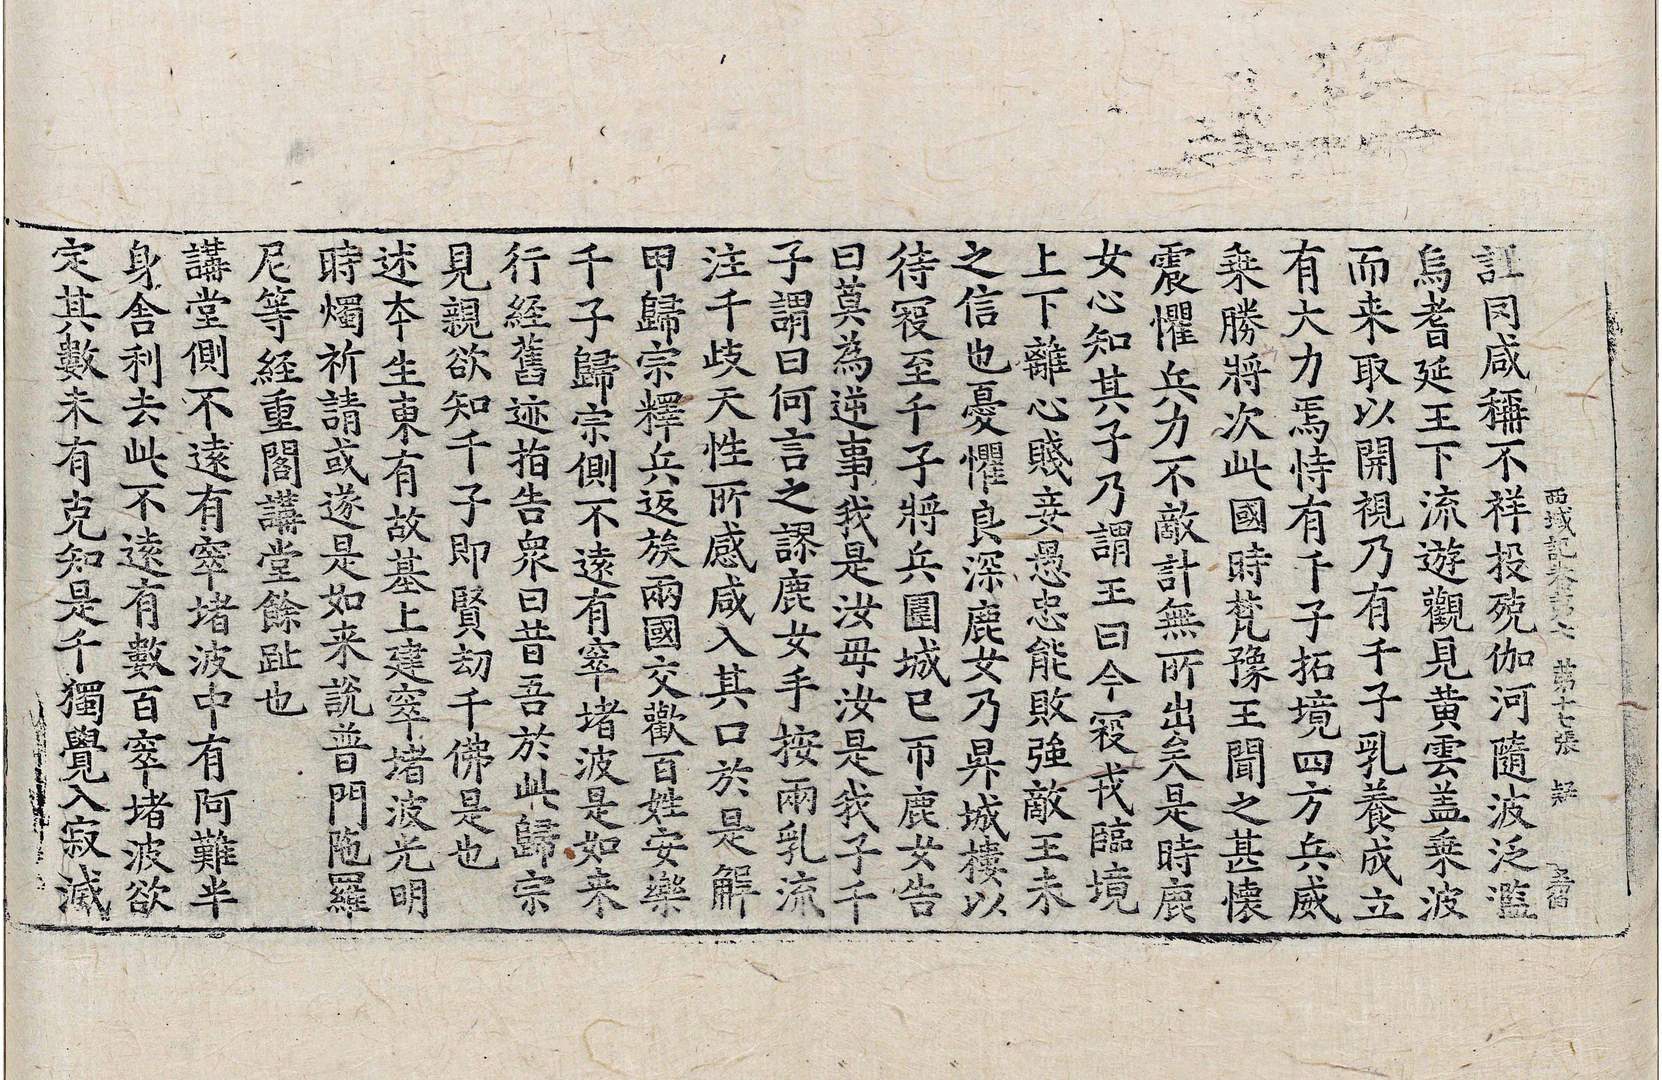 西域記卷第七 第十七張 疑
訌罔咸稱不祥投殑伽河隨波泛濫
烏耆延王下流遊觀見黄雲盖乗波
而来取以開視乃有千子乳養成立
有大力焉恃有千子拓境四方兵威
乗勝將次此國時梵豫王聞之甚懷
震懼兵力不敵計無所出矣是時鹿
女心知其子乃謂王曰今寇戎臨境
上下離心賤妾愚忠能敗強敵王未
之信也憂懼良深鹿女乃昇城樓以
待寇至千子將兵圍城已帀鹿女告
曰莫為逆事我是汝母汝是我子千
子謂曰何言之謬鹿女手按兩乳流
注千歧天性所感咸入其口於是解
甲歸宗釋兵返族兩國交歡百姓安樂
千子歸宗側不遠有窣堵波是如来
行經舊迹指告衆曰昔吾於此歸宗
見親欲知千子即賢劫千佛是也
述本生東有故基上建窣堵波光明
時燭祈請或遂是如来說普門陁羅
尼等經重閣講堂餘趾也
講堂側不遠有窣堵波中有阿難半
身舍利去此不遠有數百窣堵波欲
定其數未有克知是千獨覺入寂滅